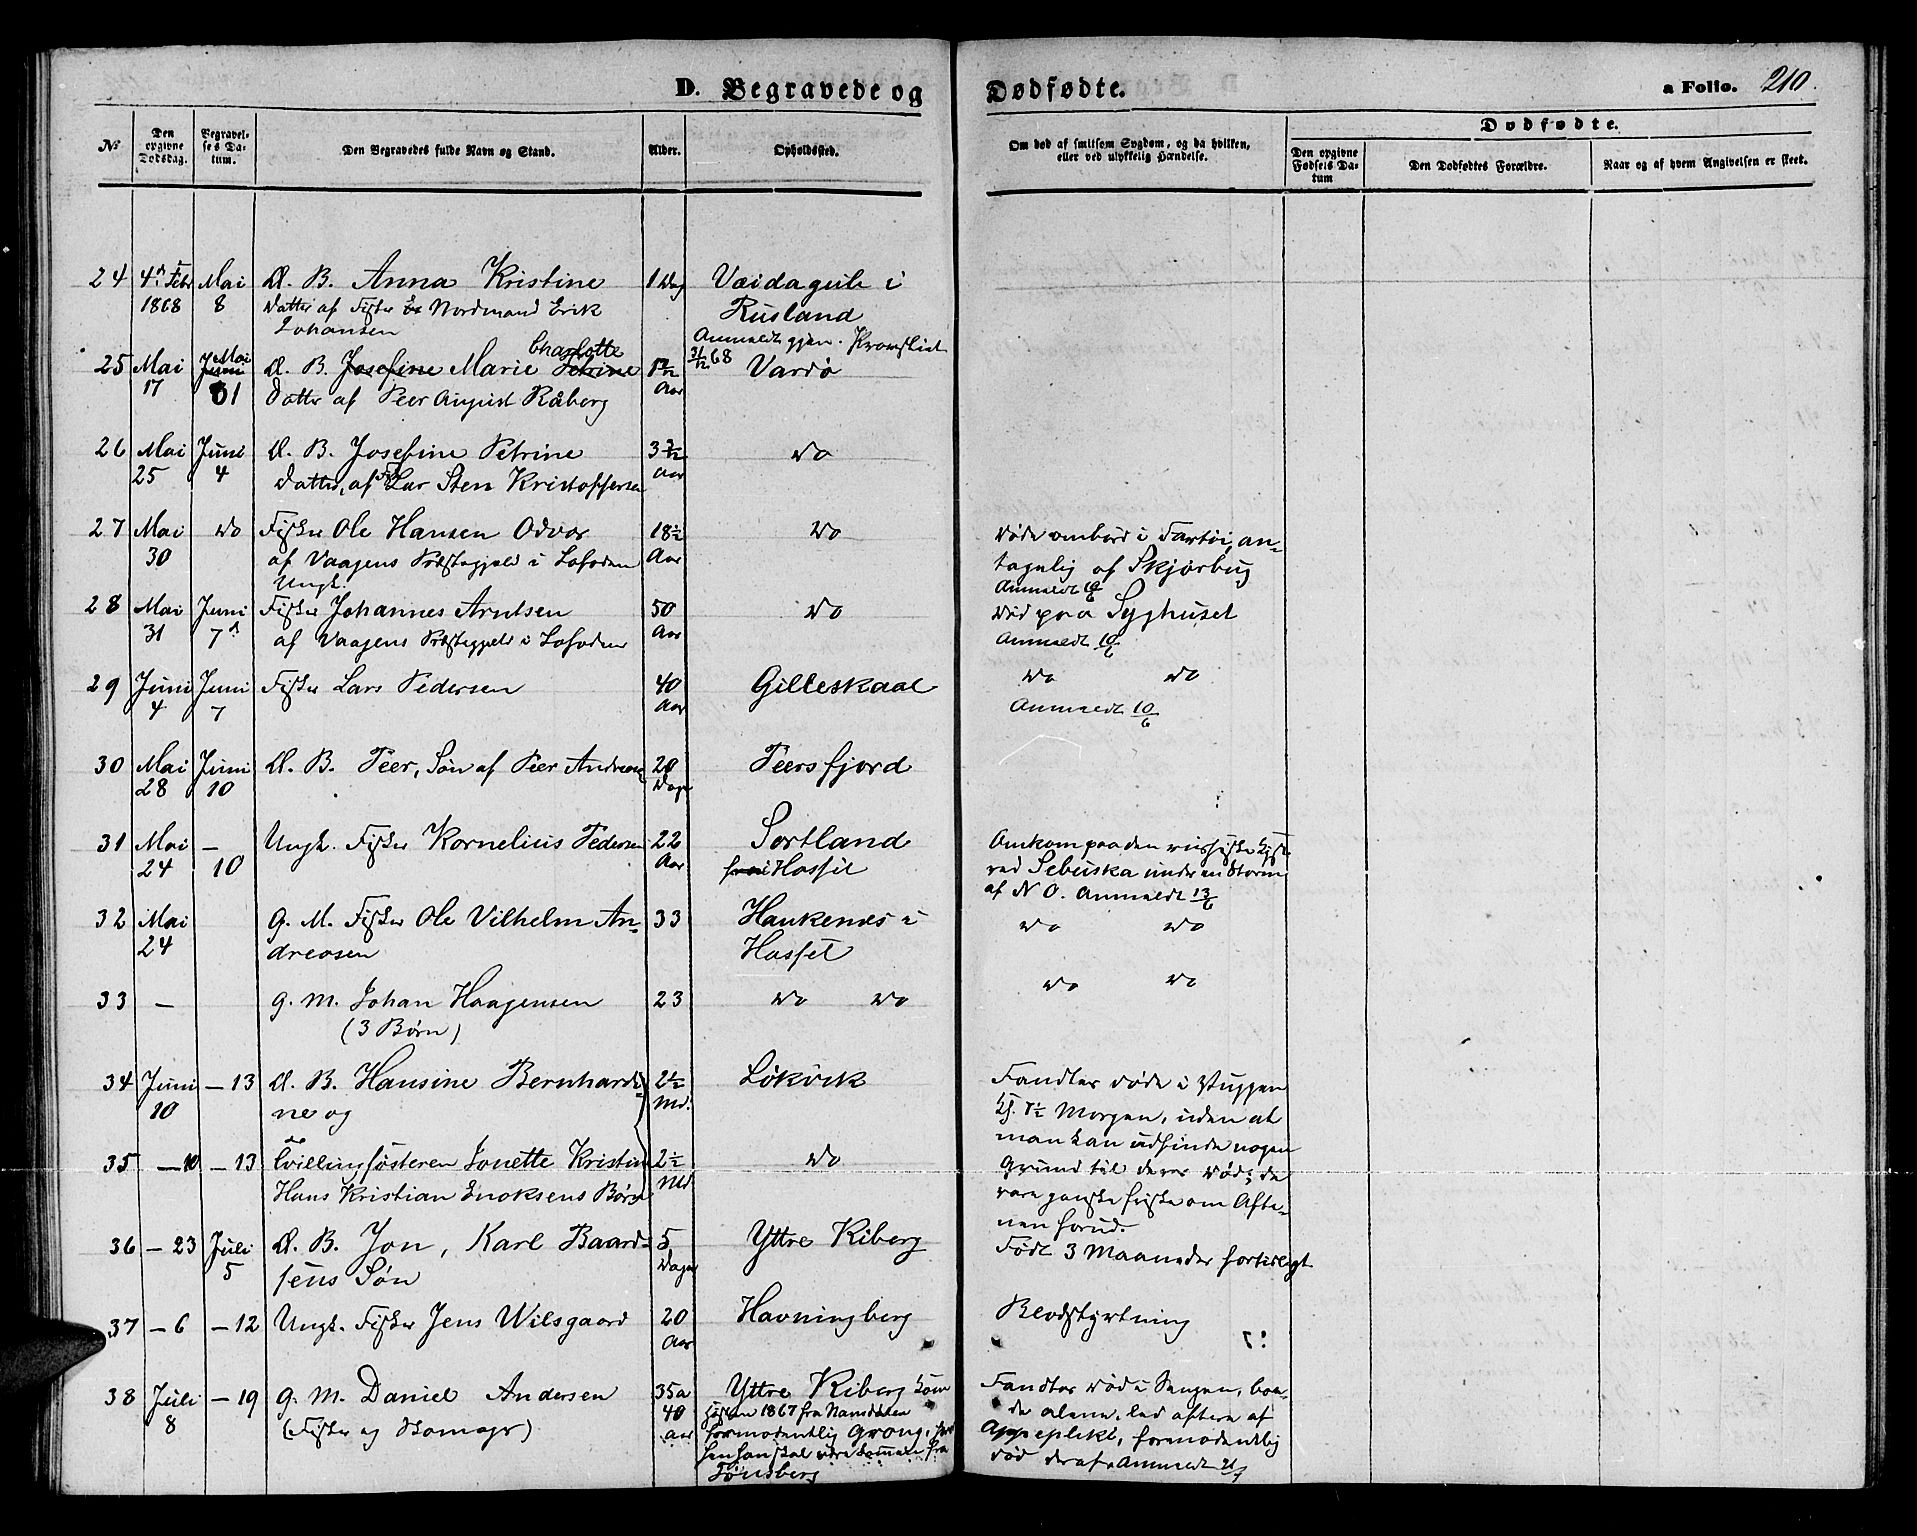 D. Begravede og Dødfødte.
a Folio. 210.
No
Den opgivne Dødsdag.
Begravelses Datum.
Den Begravedes fulde Navn og Stand.
Alder.
Opholdssted.
Om død af smitsom Sygdom, og da hvilken, eller ved ulykkelig Hændelse.
Dødfødte.
Den opgivne Fødsels Datum
Den Dødfødtes Forældre.
Naar og af hvem Angivelsen er skeet.
24 4de Febr Mai D. B. Anna Kristine 1 Dag Vaidagub i
1868 8 Datter af Fisker Nordmand Erik Rusland
Johansen
Anmeldt gjen.
25 Mai Mai D. B. Josefine Marie Charlotte Petrine 31/12 68 Vardø
17 31 Datter af Peer August Råberg Aar
26 Mai Juni D. B. Josefine Petrine 3 Do
25 4 Datter af Lar Sten Kristoffersen Aar
27 Mai Do Fisker Ole Hansen Odvær 18½ Do Døde ombord i Fartøi, an-
30 af Vaagens Præstegjeld i Lofoden Aar tagelig af Skjørbug
Ungk. Anmeldt
28 Mai Juni Fisker Johannes Arntsen 50 Do Død paa Syghuset
31 7de af Vaagens Præstegjeld i Lofoden Aar Anmeldt 10/6
29 Juni Juni Fisker Lars Pedersen 40 Gilleskaal Do Do
4 7 Aar Anmeldt 10/6
30 Mai Juni D. B. Peer, Søn af Peer Andreas 20 Peersfjord
28 10 Dage
31 Mai – Ungk. Fisker Kornelius Pedersen 22 Sortland Omkom paa den russiske Kyst
24 10 Aar Hassel ved Sebuska under en Storm
af N O. Anmeldt 13/6
32 Mai G. M. Fisker Ole Vilhelm An- 33 Haukenes i Do Do
24 dreasen Hassel
33 – G. M. Johan Haagensen 23 Do Do Do Do
(3 Børn)
34 Juni – 13 D. B. Hansine Bernhardi- 2½ Løkvik Fandtes døde i Vuggen
10 ne og Md. Kl. Morgen, uden at
man kan udfinde nogen
35 – 10 – 13 Tvillingsøsteren Jonette Kristine 2½ Do Grund til deres Død; de
Hans Kristian Enoksens Børn Md vare ganske friske om Afte-
nen forud.
36 – 23 Juli D. B. Jon, Karl Baard- 5 Yttre Kiberg Født 3 Maaneder fortidligt
5 sens Søn Dage
37 – 6 – 12 Ungk. Fisker Jens Wilsgaard 20 Havningberg Blodstyrtning
Aar
38 Juli – 19 G. M. Daniel Andersen 35 a Yttre Kiberg kom Fandtes død i Sengen, boe-
8 (Fisker og Skomager) 40 1867 fra Namdalen de alene, led oftere af
Aar formodentlig Grong, Appeplekt, formodentlig
han skal være kommen fra død deraf. Anmeldt 21/7
Tønsberg